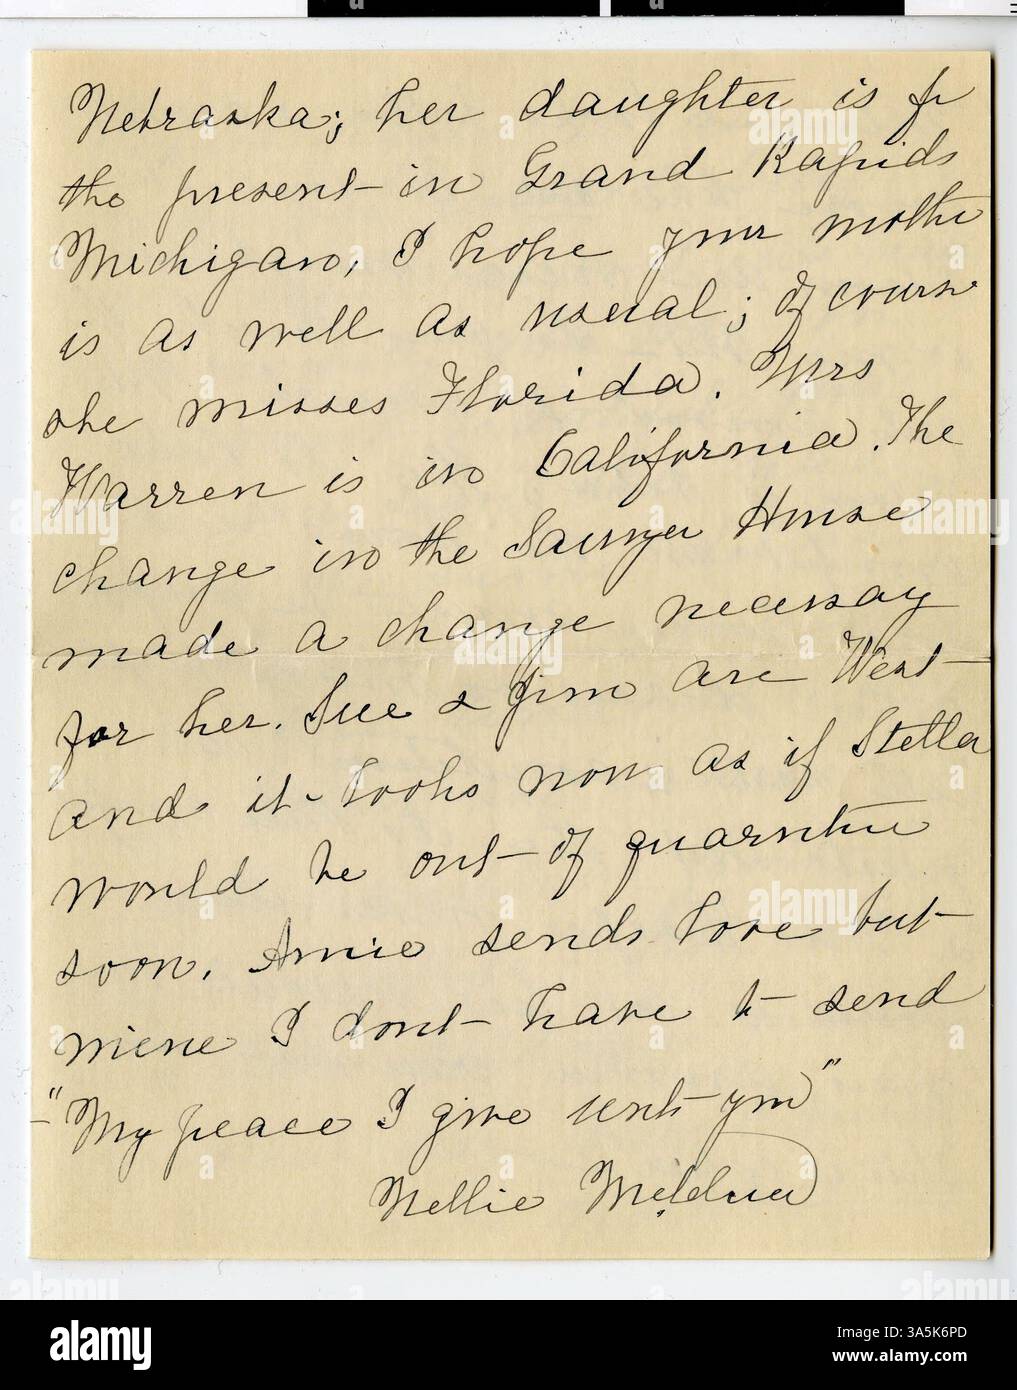 Nebraska; her daughter is fr
the present in Grand Rapids
Michigan, I hope your mother
is as well as usual; of course
she misses Florida. Mrs
Warren is in California. The
change in the Sawyer House
made a change necessary
for her. Sue & Jim are West
and it looks now as if Stella
would be out of quarntine
soon. Annie sends love but
mine I dont have to send
"My peace I give unto you"
Nellie
alamy
Image ID: 3A5K6PD
www.alamy.com